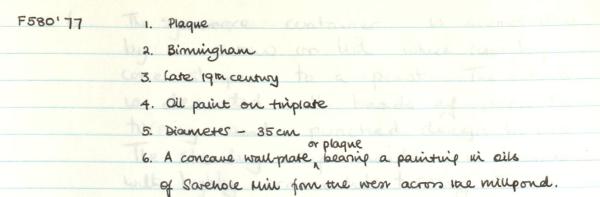 F580'77
1. Plaque
2. Birmingham
3. Late 19th century
4. Oil paint on tinplate
5. Diameter - 35cm
6. A concave wall-plate, or plaque bearing a painting in oils
of Sarehole Mill from the west across the millpond.